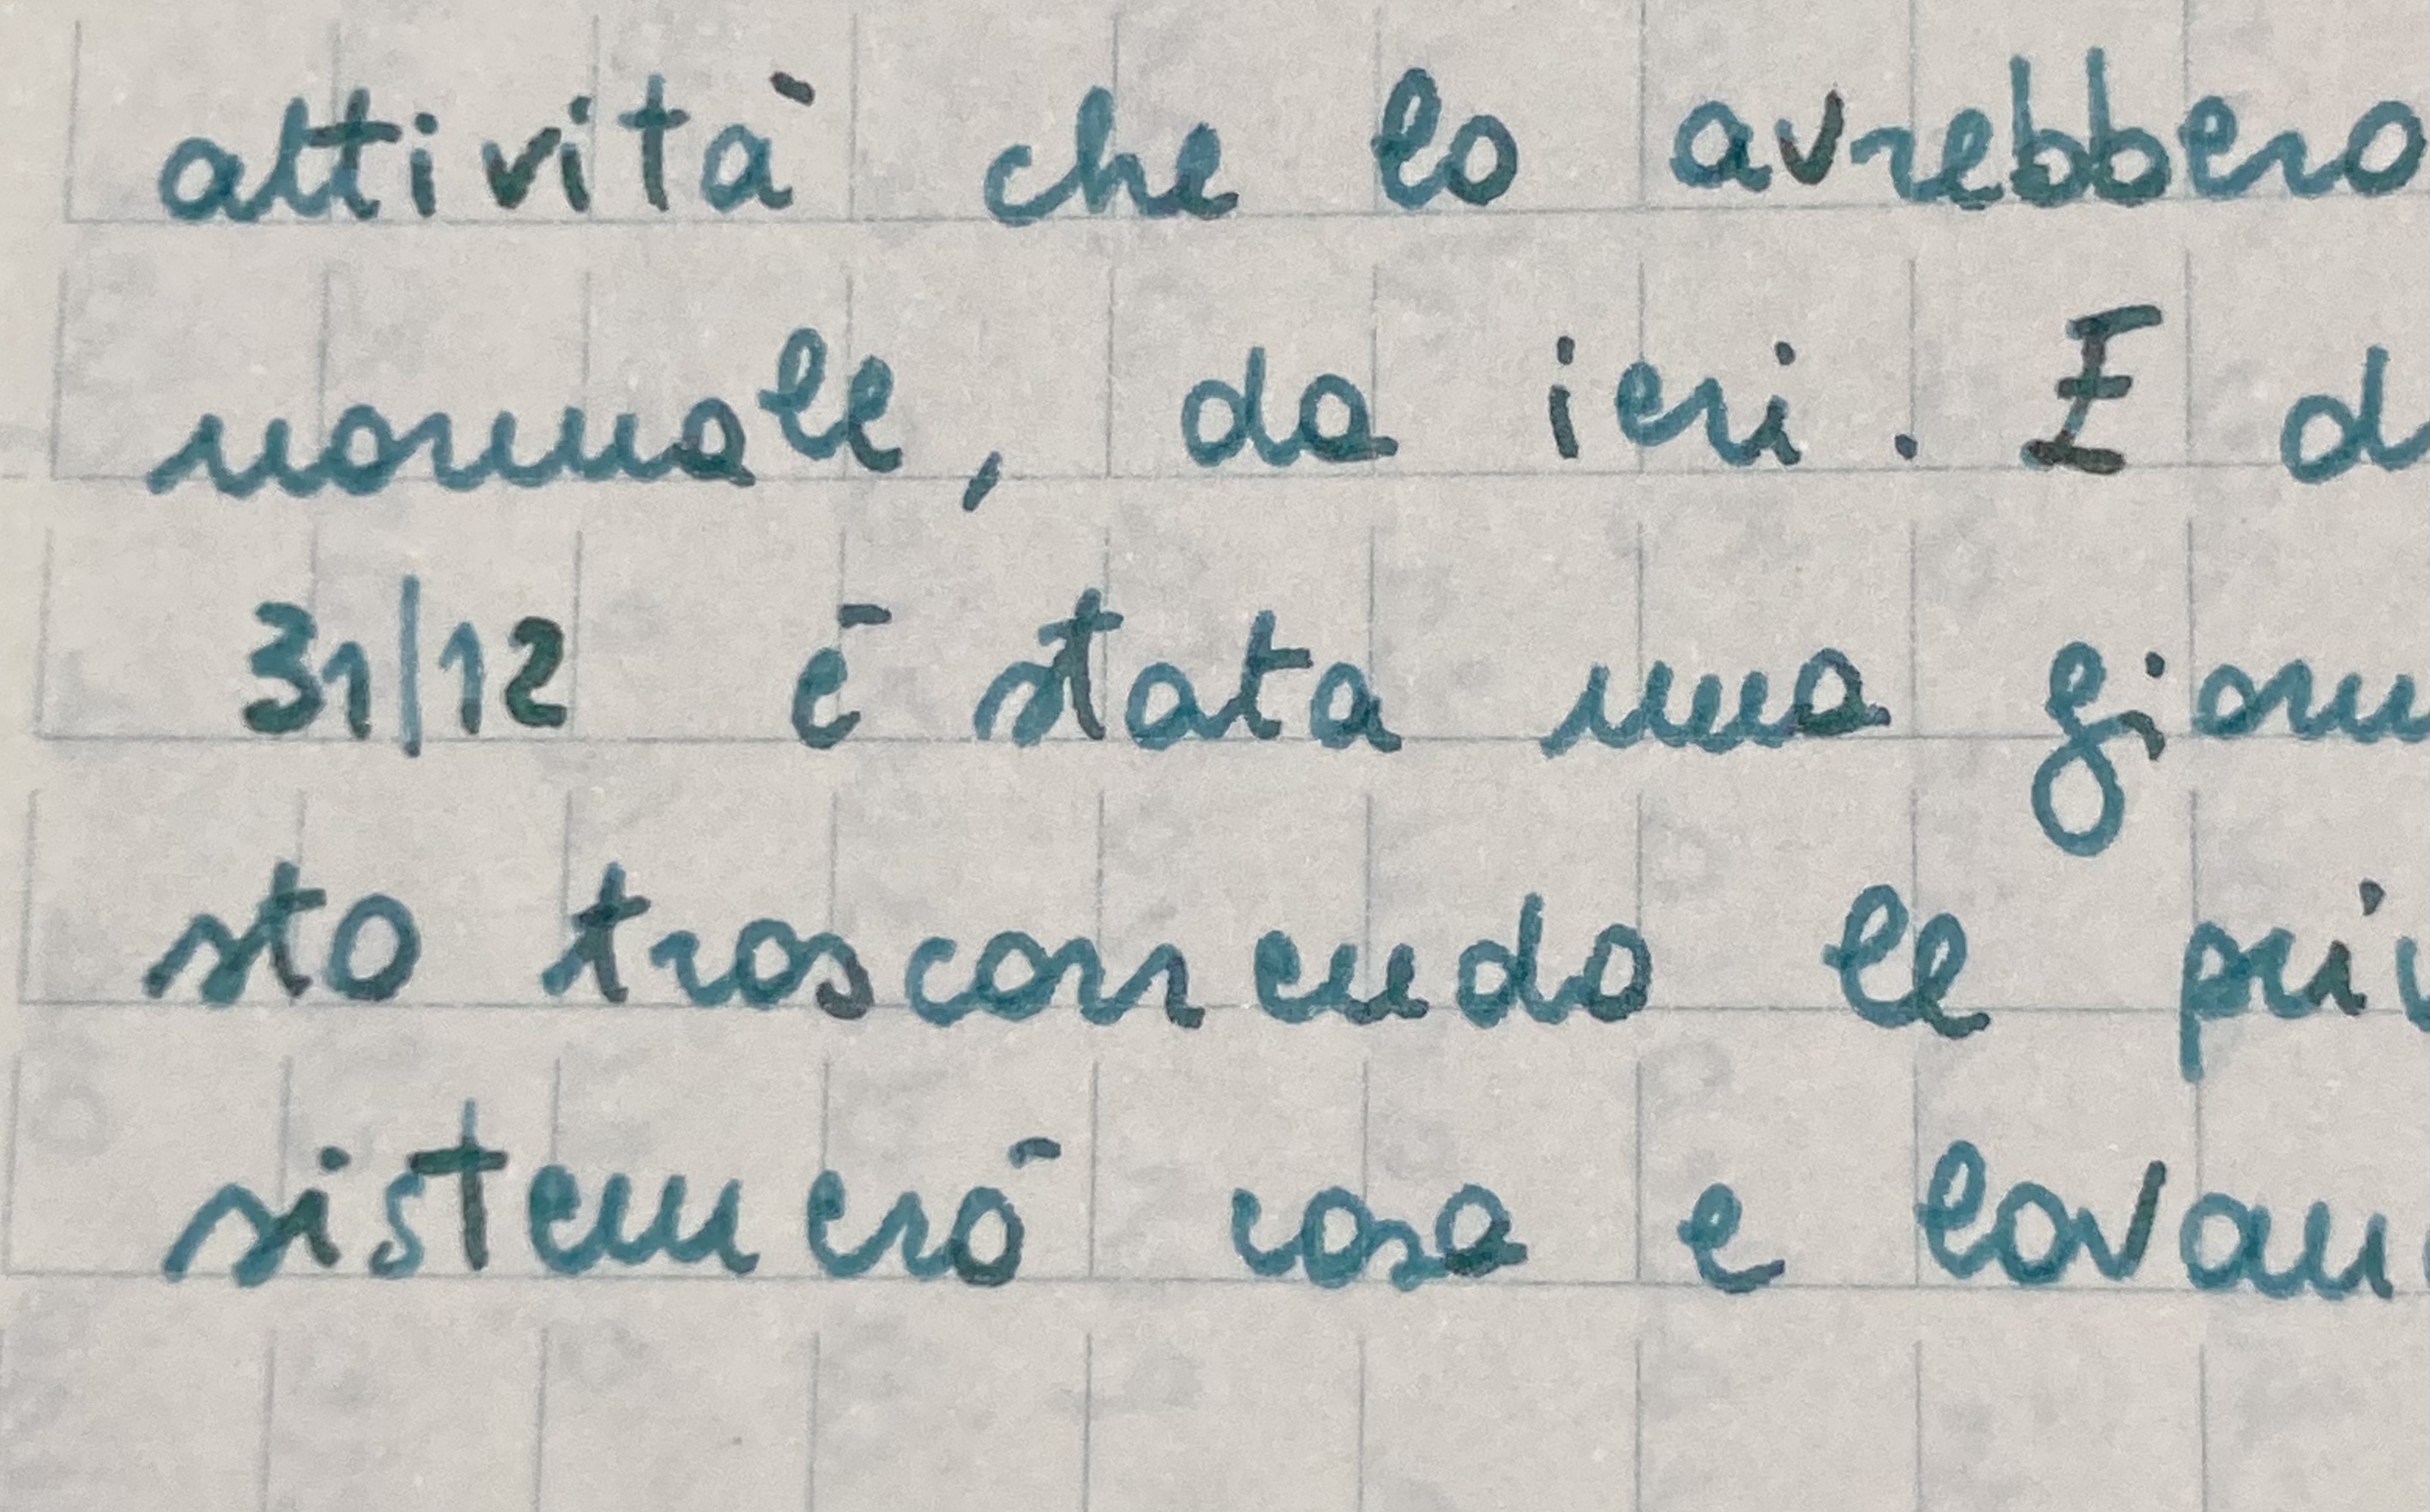 attività che lo avrebbero
normale, da ieri. E d
31/12 è stata una giorn
sto trascorrendo le pri
sistemerò casa e lavan